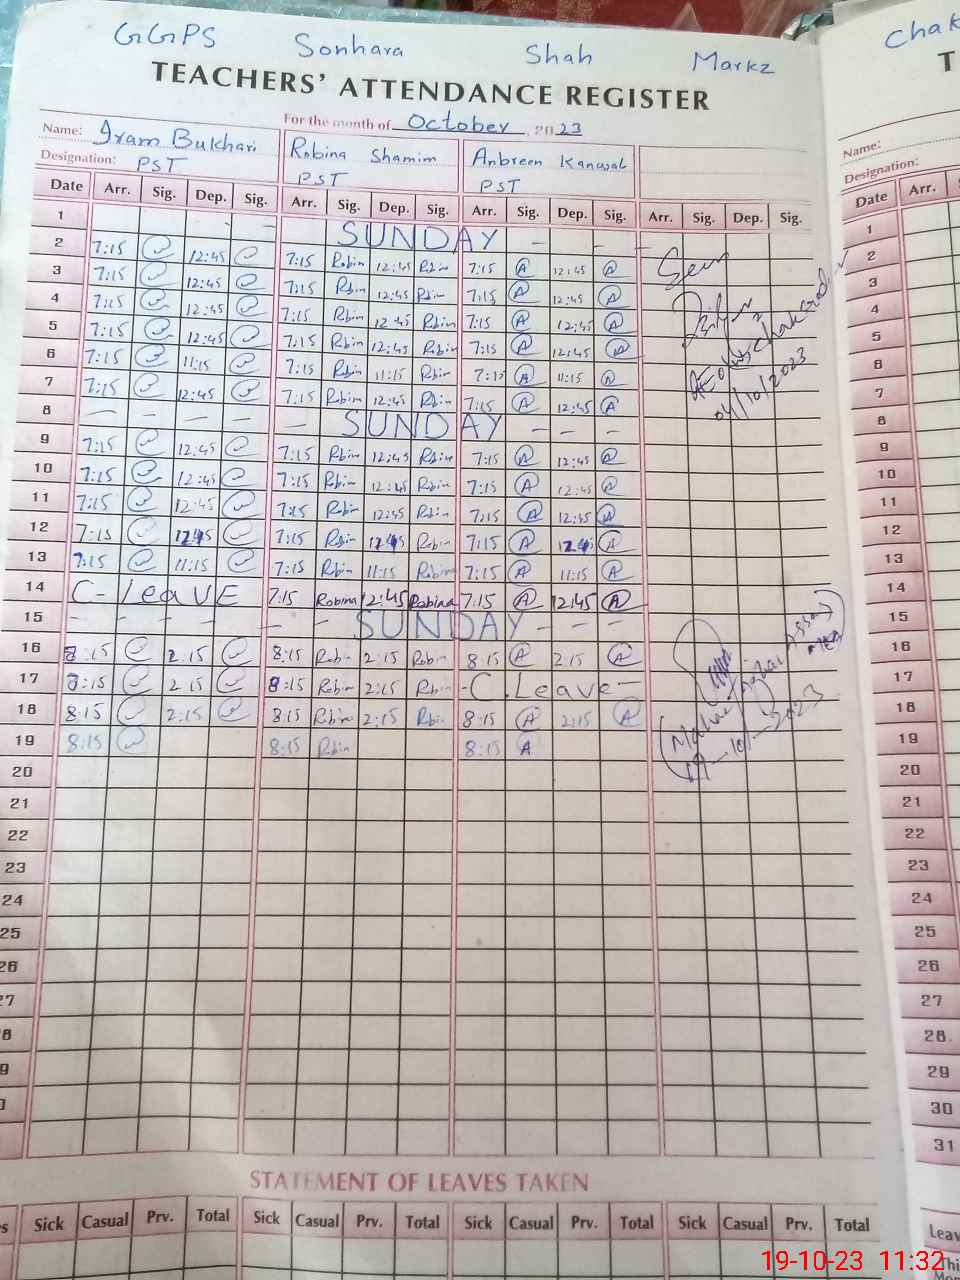 GGPS Sonhara Shah Markz
Chak
TEACHERS' ATTENDANCE REGISTER
T
For the month of October, 2023
Name: Iram Bukhari Robina Shamim Anbreen Kanwal
Name:
Designation: PST PST PST
Designation:
Date Arr. Sig. Dep. Sig. Arr. Sig. Dep. Sig. Arr. Sig. Dep. Sig. Arr. Sig. Dep. Sig.
Date Arr. S
1 SUNDAY
1
2 7:15 12:45 7:15 Robin 12:45 Robin 7:15 A 12:45 A Seen
2
3 7:15 12:45 7:15 Robin 12:45 Robin 7:15 A 12:45 A
3
4 7:15 12:45 7:15 Robin 12:45 Robin 7:15 A 12:45 A
4
5 7:15 12:45 7:15 Robin 12:45 Robin 7:15 A 12:45 A
5
6 7:15 11:15 7:15 Robin 11:15 Robin 7:15 A 11:15 A
6
7 7:15 12:45 7:15 Robin 12:45 Robin 7:15 A 12:45 A
04/10/2023
7
8 SUNDAY
8
9 7:15 12:45 7:15 Robin 12:45 Robin 7:15 A 12:45 A
9
10 7:15 12:45 7:15 Robin 12:45 Robin 7:15 A 12:45 A
10
11 7:15 12:45 7:15 Robin 12:45 Robin 7:15 A 12:45 A
11
12 7:15 12:45 7:15 Robin 12:45 Robin 7:15 A 12:45 A
12
13 7:15 11:15 7:15 Robin 11:15 Robin 7:15 A 11:15 A
13
14 C-leaVE 7:15 Robina 12:45 Robina 7:15 A 12:45 A
14
15 SUNDAY
15
16 8:15 2:15 8:15 Robin 2:15 Robin 8:15 A 2:15 A
16
17 8:15 2:15 8:15 Robin 2:15 Robin -C.Leave-
17
18 8:15 2:15 8:15 Robin 2:15 Robin 8:15 A 2:15 A
18
19 8:15 8:15 Robin 8:15 A
19-10-2023
19
20
20
21
21
22
22
23
23
24
24
25
25
26
26
27
27
8
28
9
29
30
31
STATEMENT OF LEAVES TAKEN
s Sick Casual Prv. Total Sick Casual Prv. Total Sick Casual Prv. Total Sick Casual Prv. Total
Leav
19-10-23 11:32